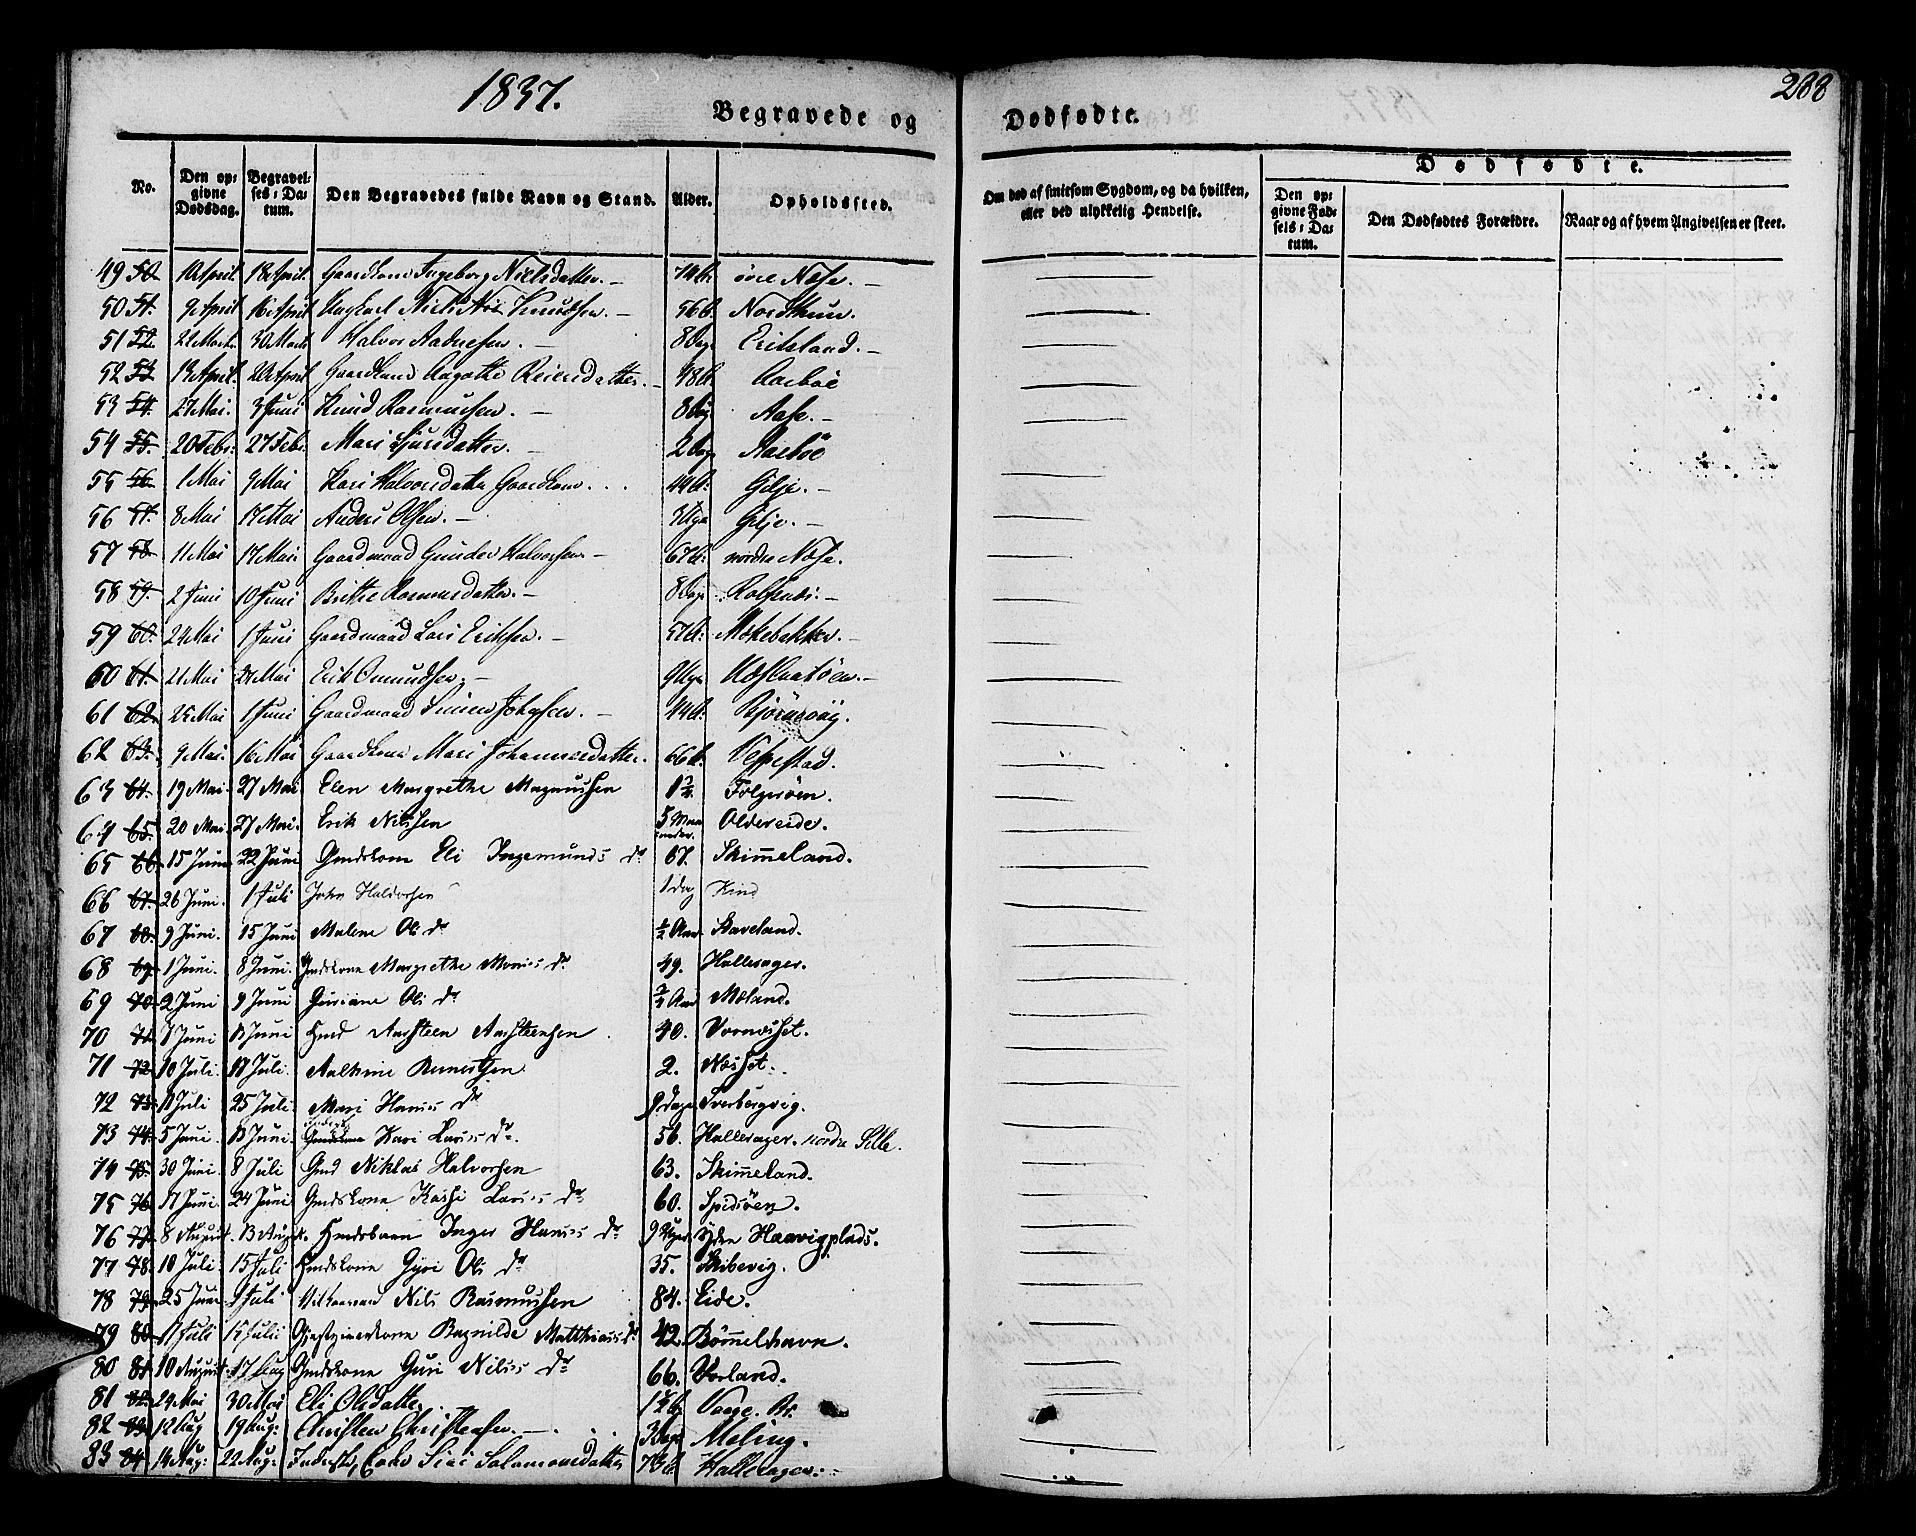 1837.
288
Begravede og Dødfødte.
No.
Den opgivne Dødsdag.
Begravelses-Datum.
Den Begravedes fulde Navn og Stand.
Alder.
Opholdssted.
Om død af smitsom Sygdom, og da hvilken, eller ved ulykkelig Hendelse.
Dødfødte.
Den opgivne Fødsels-Datum.
Den Dødfødtes Forældre.
Naar og af hvem Angivelsen er skeet.
49 50. 10 April. 18 April. Gaardkone Ingeborg Nielsdatter. — øvre Næse. —
50 51. 9 April 16 April Ungkarl Niels Knudsen. — 56 Nordthuun.
51 52 22 Marts. 30 Marts Halvor Aadnesen. — 8 Dage Erikland. —
52 53 14 April. 20 April Gaardkone Aagothe Reiersdatter. — Aarböe
53 54. 27 Mai. 3 Juni Knud Rasmussen. — 8 Dage Aase. —
54 55. 20 Febr. 27 Febr. Mari Sjursdatter. — 2 Dage Aarböe
55 56. 1 Mai 9 Mai Kari Halvorsdatter Gaardkone . . . Gilje. —
56 57. 8 Mai 17 Mai Anders Olsen. — 3 Uger Gilje. —
57 58. 11 Mai 17 Mai Gaardmand Gunder Halvorsen — 67 nordre Næse.
58 59. 2 Juni 10 Juni Britte Rasmusdatter. — 8 Dage Rolfsnæs. —
59 60. 24 Mai 1 Juni Gaardmand Lars Eriksen. — 57 Mækebakker. —
60 61. 21 Mai Mai Erik Omundsen. — 9 Uger
61 62. 25 Mai 1 Juni Gaardmand Simen Johnsen. — 44 Bjørnevaag.
62 63. 9 Mai. 16 Mai Gaardkone Mari Johannesdatter. 66 Vespestad.
63 64. 19 Mai. 27 Mai Elen Margrethe Magnussen Folgerøen.
64 65. 20 Mai. 27 Mai. Erik Nilssen 5 Maaneder. Oldereide.
65 66. 15 Juni 22 Juni Gmdskone Eli Ingemunds dr 67. Skimmeland.
66 67. 26 Juni. 1 Juli John Haldorsen 1 dag Kind
67 68. 9 Juni. 15 Juni Malene Ols dr ½ Aar Staveland.
68 69. 1 Juni. 8 Juni. Gmdskone Margrethe Monses dr 49. Hallesager.
69 70. 2 Juni 9 Juni Guriane Ols dr Aar Mæland.
70 71 7 Juni Juni Aarsteen Aarsteensen . 40. Vornæsset.
71 72 10 Juli. Juli. Aalhine 2. Næsset.
72 73. Juli 25 Juli. Mari Hanses dr 9 dage Sverbergvig.
73 74. 5 Juni. Juni. Gmdskone Kari Larses dr. 56. Hallesager. nordre Lille.
74 75. 30 Juni. 8 Juli Gmd Niklas Halvorsen 63. Skimmeland.
75 76 17 Juni. 24 Juni Gmdskone Kasse Larses dr 60. Spidsøen.
76 77. 8 August. 13 August. Inger Hanses dr 9 Uger Ydre Haavigplads.
77 78. 10 Juli. 15 Juli Gyri Ols dr 35. Skibevig.
78 79. 25 Juni Juli Nils Rasmussen 84. Eide.
79 80 Juli 15 Juli Gjestgiverkone Ragnilde Matthias dr 42. Bømmelhavn.
80 81 10 August 17 Aug Gmdskone Guri Nilses dr 66. Vorland.
81 82. 24 Mai 30 Mai Eli Olsdatter. Vaage. Br.
82 83. 12 Aug 19 Aug: Christen Christensen. — . . 3 Dage Meling.
83 84. 14 Aug: 22 Aug: Inderste, Enke Siri Salamonsdatter Hallesager. —